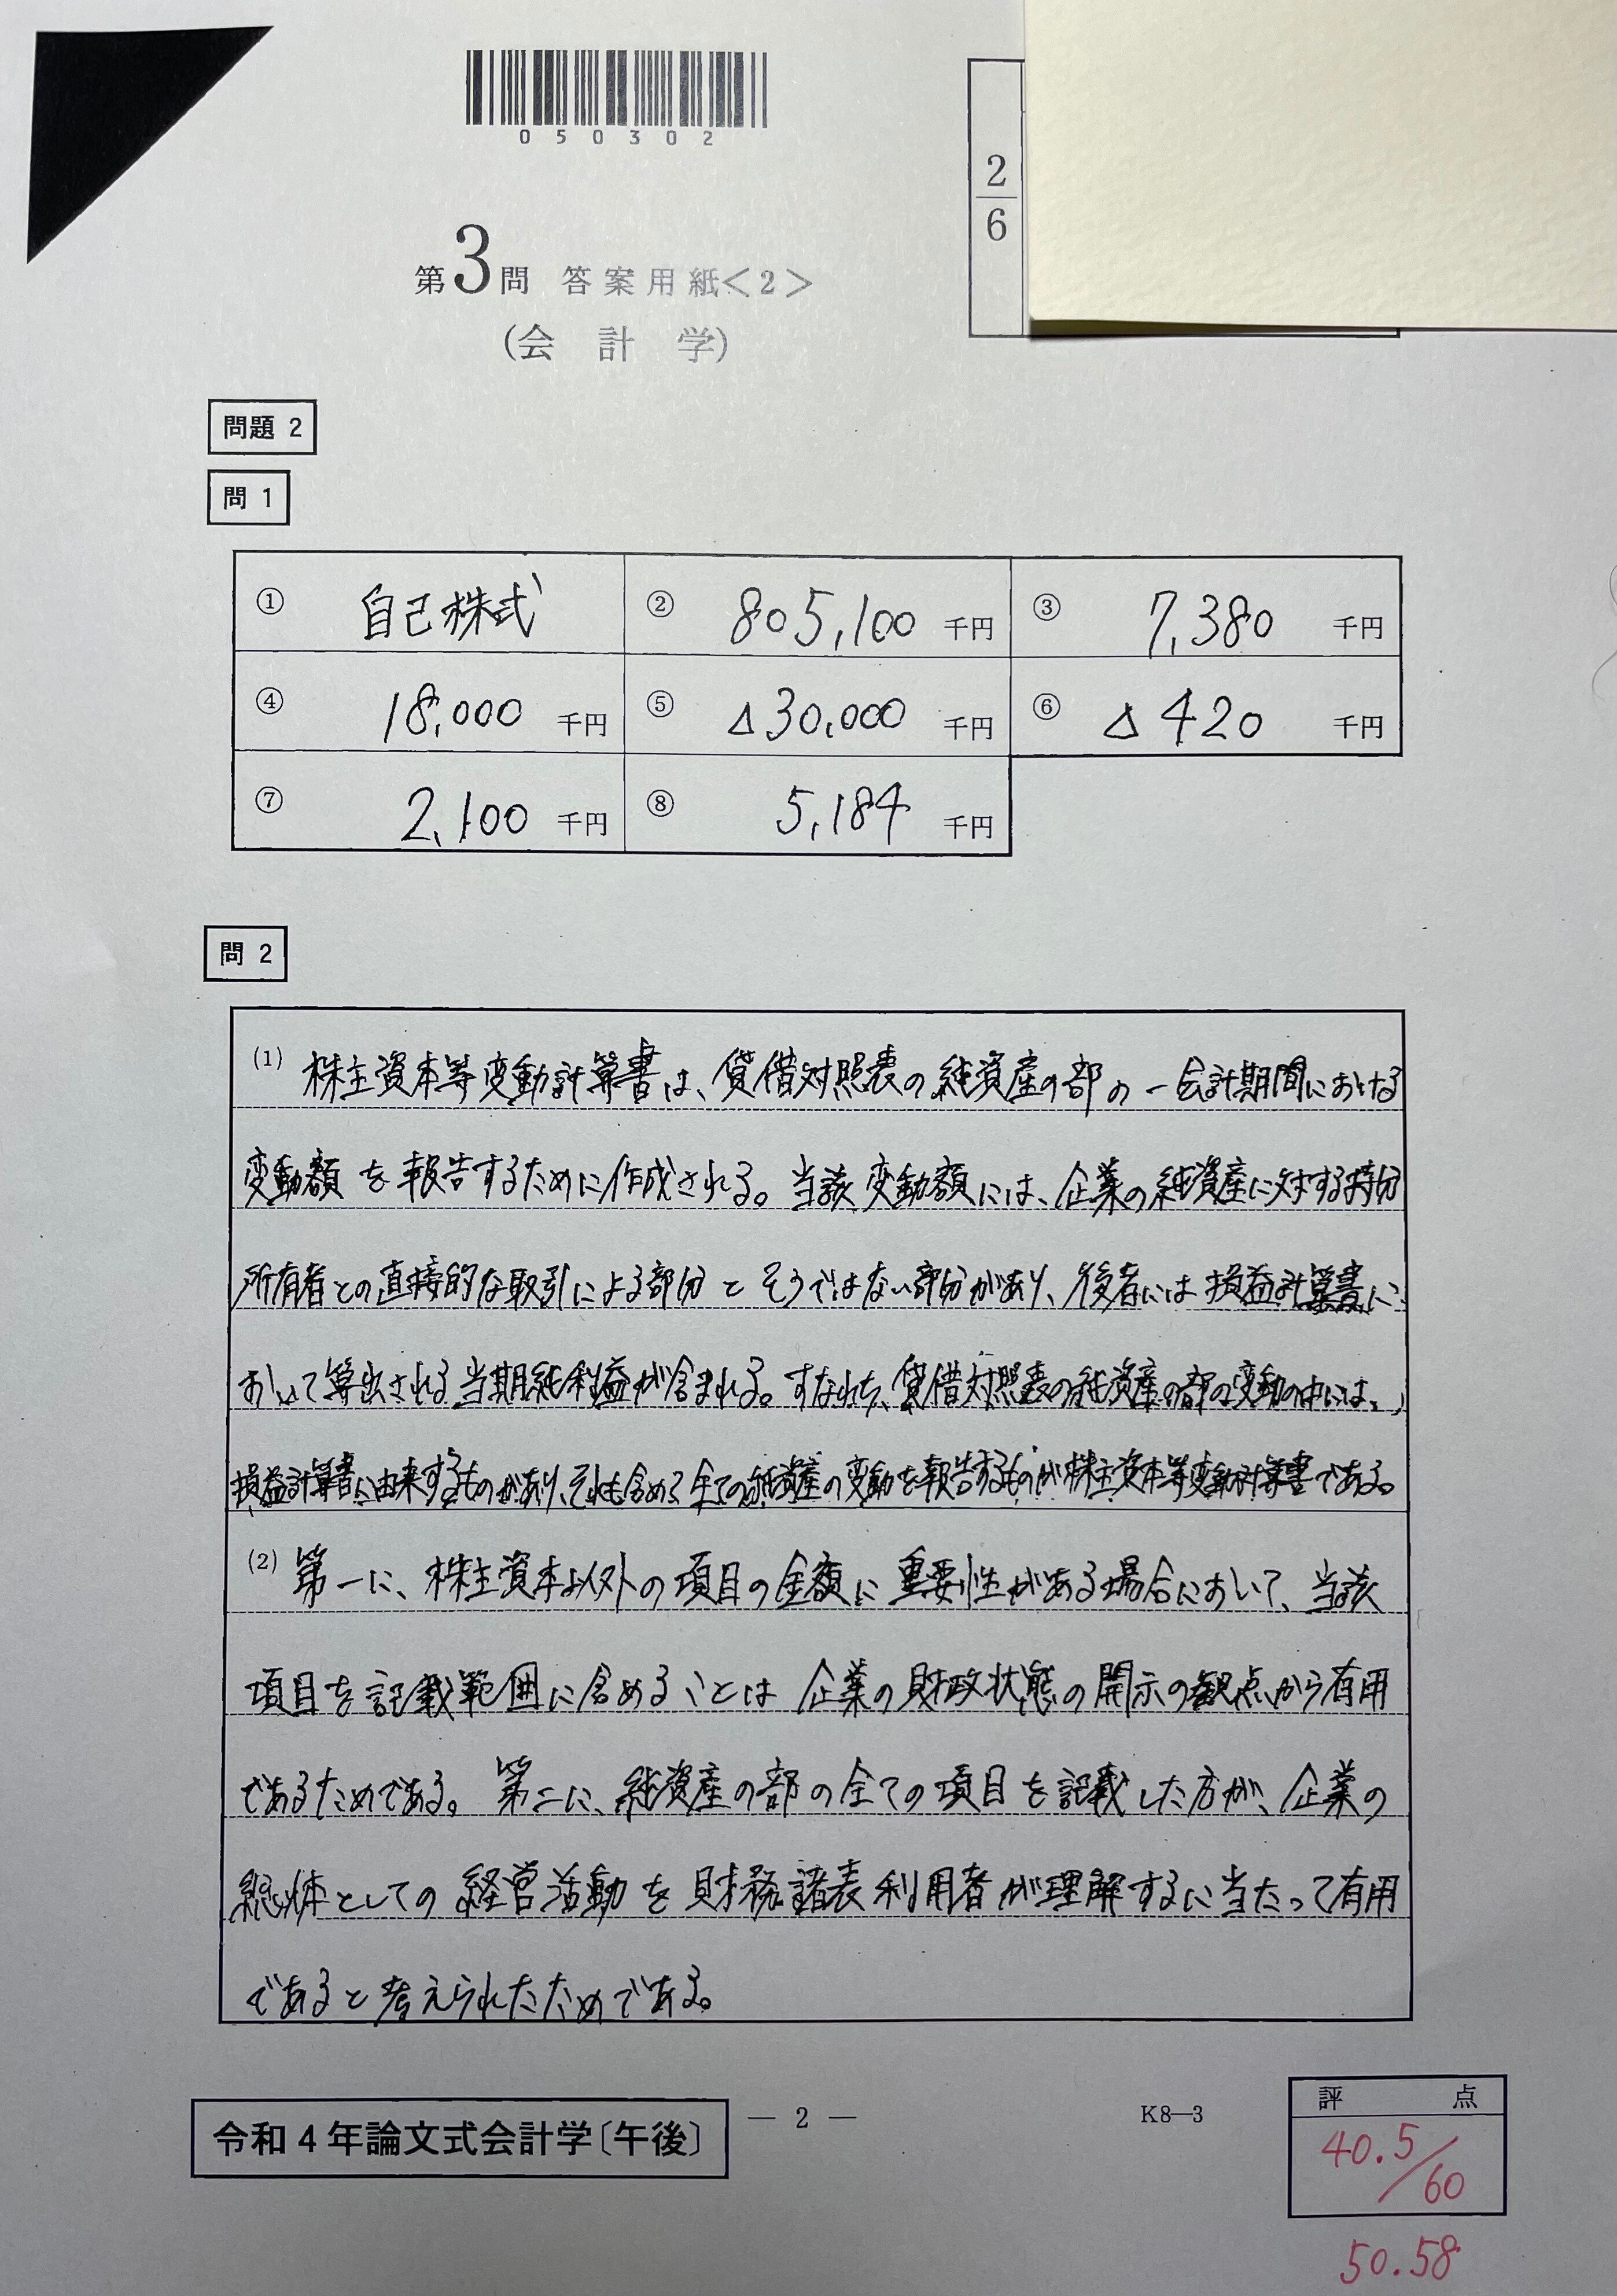 050302
2
6
第3問 答案用紙<2>
(会計学)
問題 2
問 1
① 自己株式 ② 805,100 千円 ③ 7,380 千円
④ 18,000 千円 ⑤ △30,000 千円 ⑥ △420 千円
⑦ 2,100 千円 ⑧ 5,184 千円
問 2
(1) 株主資本等変動計算書は、貸借対照表の純資産の部の一会計期間における
変動額を報告するために作成される。当該変動額には、企業の純資産に対する持分
所有者との直接的な取引による部分とそうではない部分があり、後者には損益計算書に
おいて算出される当期純利益が含まれる。すなわち、貸借対照表の純資産の部の変動の中には、
損益計算書に由来するものがあり、それも含めて全ての純資産の変動を報告するものが株主資本等変動計算書である。
(2) 第一に、株主資本以外の項目の金額に重要性がある場合において、当該
項目を記載範囲に含めることは企業の財政状態の開示の観点から有用
であるためである。第二に、純資産の部の全ての項目を記載した方が、企業の
総体としての経営活動を財務諸表利用者が理解するに当たって有用
であると考えられたためである。
令和4年論文式会計学〔午後〕
― 2 ―
K8―3
評点
40.5/60
50.58